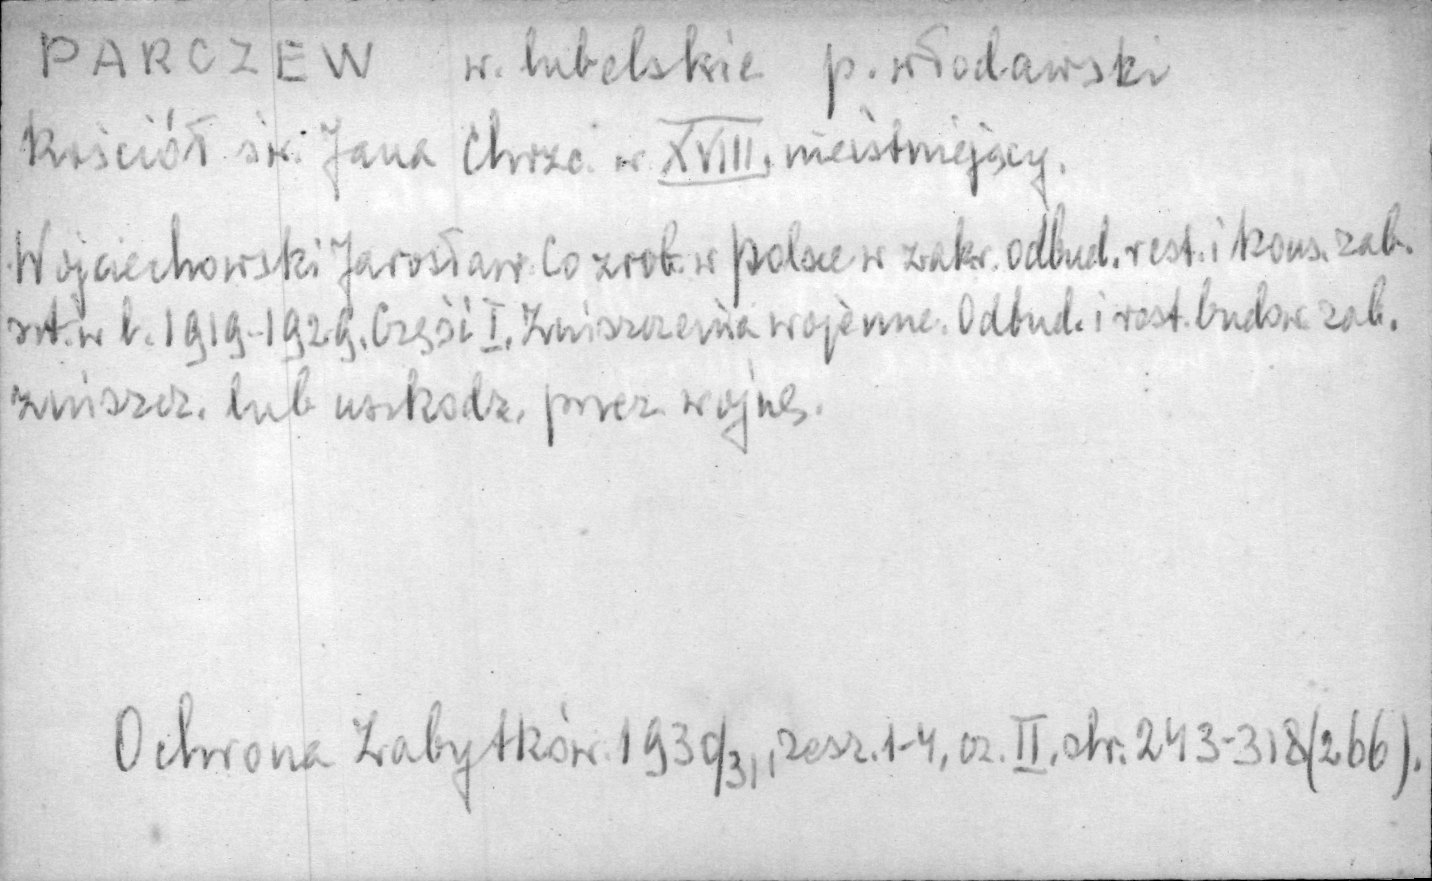 PARCZEW w. lubelskie p. włodawski
Kościół św. Jana Chrzc. w XVIII. nieistniejący.
Wojciechowski Jarosław. Co zrob. w Polsce w zakr. odbud. rest. i kons. zab.
szt. w l. 1919-1929. Część I. Zniszczenia wojenne. Odbud. i rest. budow. zab.
zniszcz. lub uszkodz. przez wojnę.
Ochrona Zabytków. 1930/31, zesz. 1-4, cz. II, str. 243-318 (266).